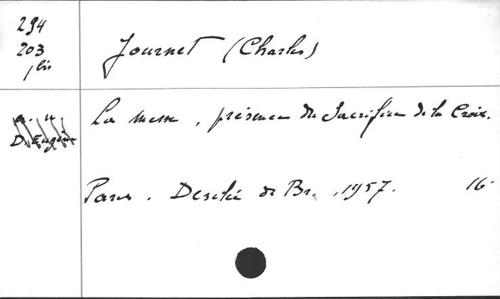 294
203
1 bis
Journet (Charles)
La messe, présence du Sacrifice de la Croix.
D. Eugène
Paris. Desclée de Br., 1957. 16°